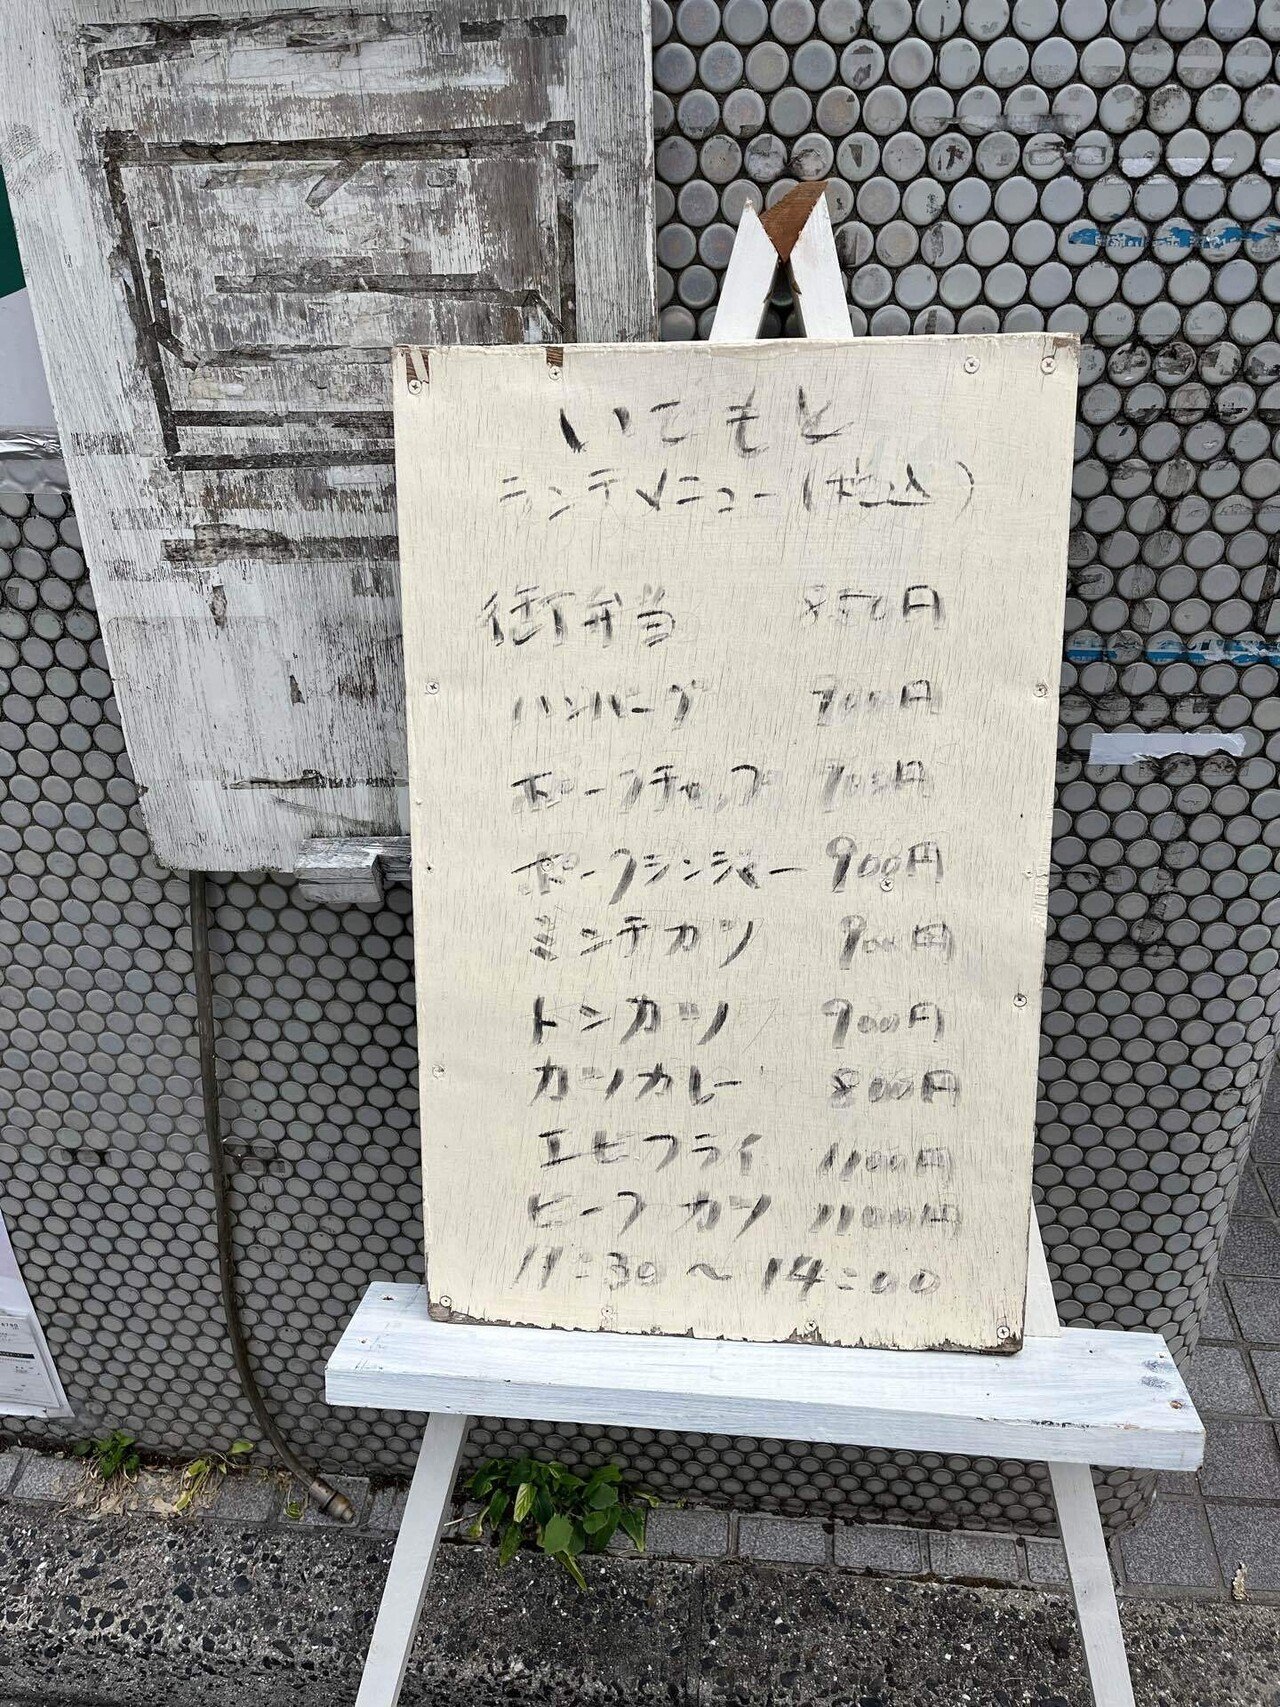 いでもと
ランチメニュー(税込)
街弁当 850円
ハンバーグ 900円
ポークチャップ 900円
ポークジンジャー 900円
ミンチカツ 900円
トンカツ 900円
カツカレー 800円
エビフライ 1100円
ビーフカツ 1100円
11:30~14:00